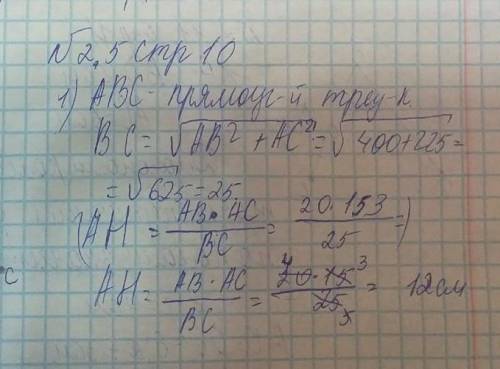 № 2,5 стр 10
1) ABC - прямоуг-й треу-к.
BC = √AB² + AC² = √400+225 =
= √625 = 25
(AH = AB · AC / BC = 20 · 153 / 25 =)
с AH = AB · AC / BC = 20 4 · 15 3 / 25 5 = 12см